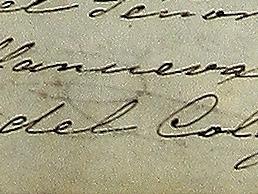 el Señor
llanueva
del Col